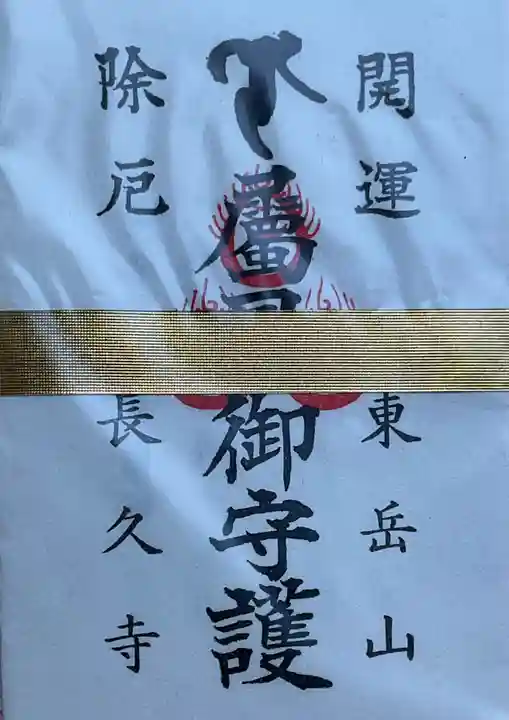 開運 東岳山
屬 御守護
除厄 長久寺